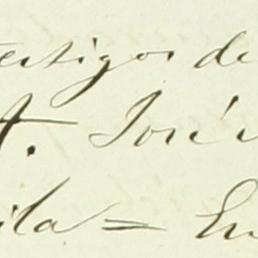 testigos de
A. José
ila = En